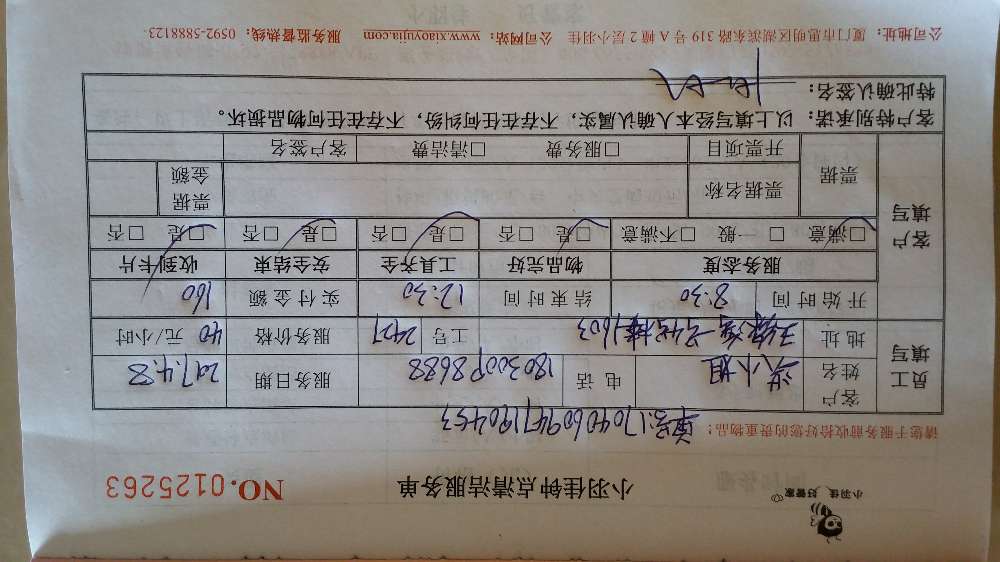 小羽佳 好管家
小羽佳钟点清洁服务单 NO.0125263
请您于服务前收拾好您的贵重物品：
单号:1704060947190453
员工填写 客户姓名 洪小姐 电话 服务日期 2017.4.8
地址 工号 2427 服务价格 40 元/小时
开始时间 8:30 结束时间 12:30 实付金额 160
客户填写 服务态度 物品完好 工具齐全 安全结束 收到卡片
□满意 □一般 □不满意 □是 □否 □是 □否 □是 □否 □是 □否
票据 票据名称 票据金额
开票项目 □服务费 □清洁费 客户签名
客户特别承诺：以上填写经本人确认属实，不存在任何纠纷，不存在任何物品损坏。
特此确认签名：
公司地址：厦门市思明区湖滨东路 319 号 A 幢 2 层小羽佳 公司网站：www.xiaoyujia.com 服务监督热线：0592-5888123